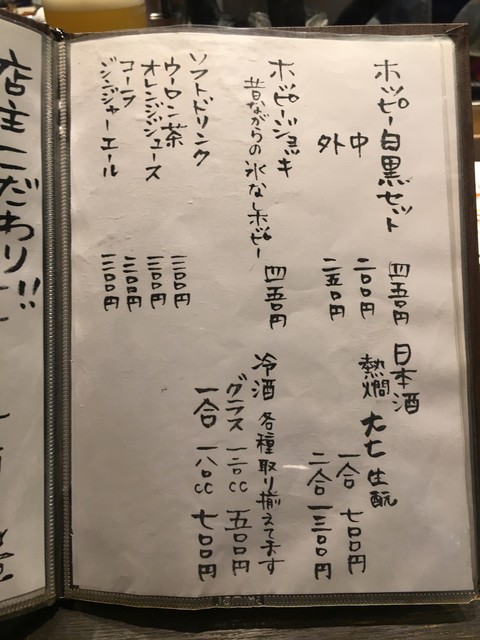 ホッピー白黒セット 四五〇円
中 二〇〇円
外 二五〇円
ホッピージョッキ 四五〇円
昔ながらの氷なしホッピー
ソフトドリンク
ウーロン茶 二〇〇円
オレンジジュース 二〇〇円
コーラ 二〇〇円
ジンジャーエール 二〇〇円
日本酒
熱燗 大七 生酛
一合 七〇〇円
二合 一三〇〇円
冷酒 各種取り揃えてます
グラス 一二〇cc 五〇〇円
一合 一八〇cc 七〇〇円
店主こだわり!!